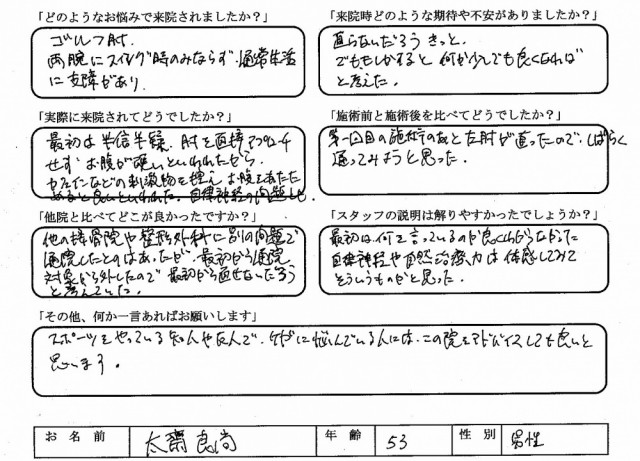 「どのようなお悩みで来院されましたか？」
ゴルフ肘.
両腕にスイング時のみならず.通常生活
に支障があり.
「来院時どのような期待や不安がありましたか？」
直らないだろう きっと.
でももしかすると 何か少しでも良くなれば
と考えた.
「実際に来院されてどうでしたか？」
最初は半信半疑. 肘を直接アプローチ
せず お腹が硬いといわれたから.
カフェインなどの刺激物を控え お腹をあたた
めると良いといわれた. 自律神経の問題とも.
「施術前と施術後を比べてどうでしたか？」
第一回目の施術のあと左肘が直ったので.しばらく
通ってみようと思った.
「他院と比べてどこが良かったですか？」
他の接骨院や整形外科に別の問題で
通院したことはあったが. 最初から通院
対象から外したので 最初から直せないだろう
と考えていた.
「スタッフの説明は解りやすかったでしょうか？」
最初は.何を言っているのか良くわからなかった
自律神経や自然治癒力は 体感してみて
そういうものかと思った.
「その他、何か一言あればお願いします」
スポーツをやっている知人や友人で.ケガに悩んでいる人には.この院をアドバイスしても良いと
思います.
お名前
太齋 良尚
年齢
53
性別
男性